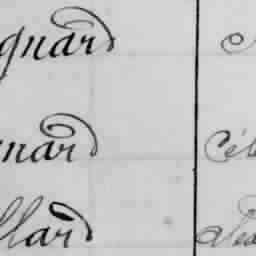 gnard
nard Cél
llard